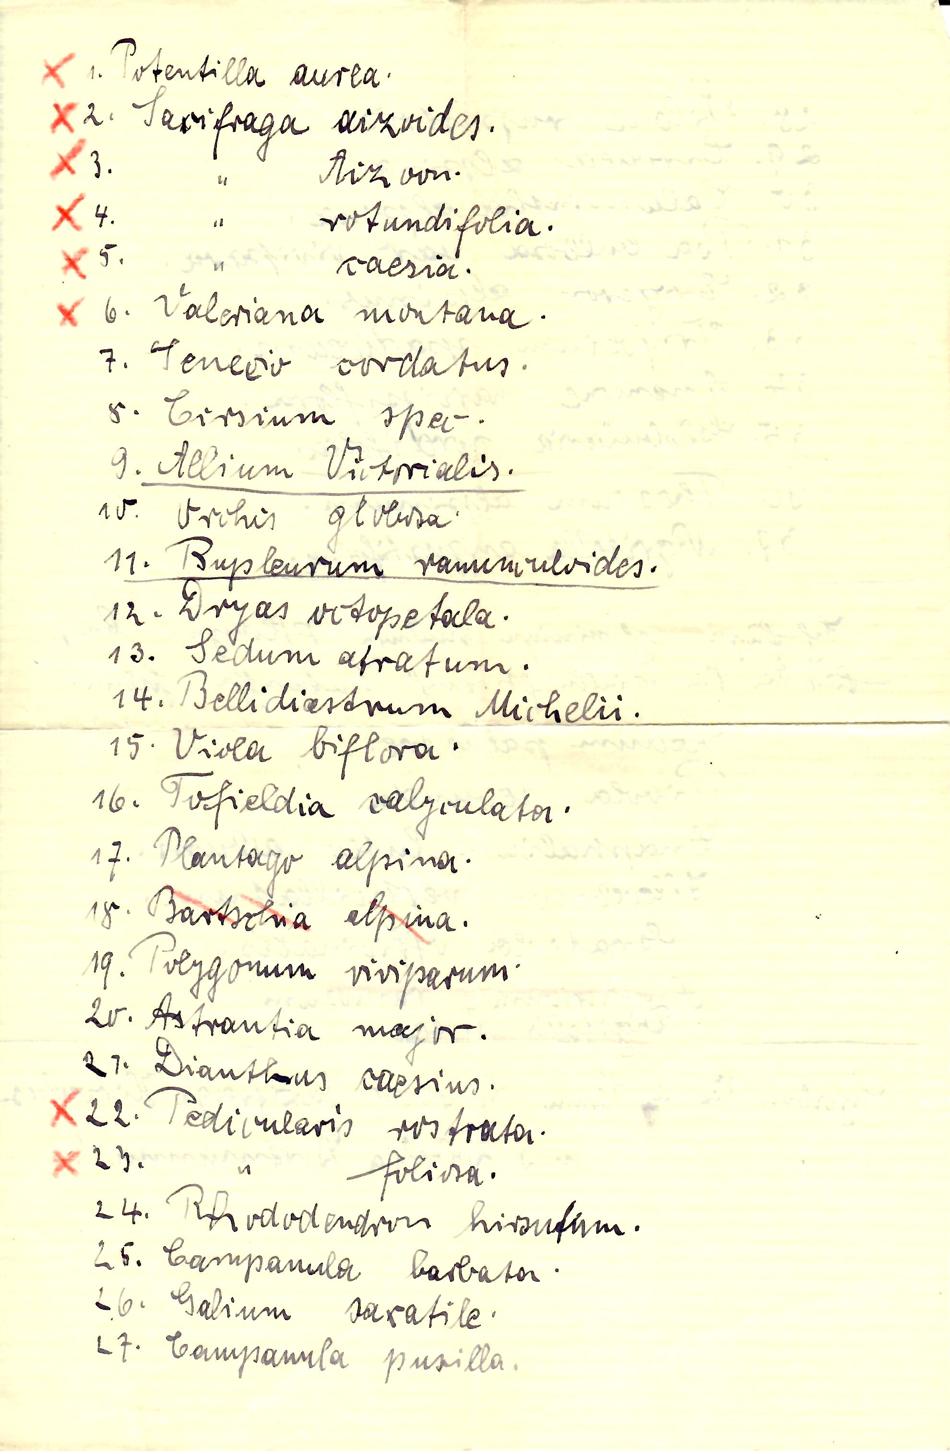 1. Potentilla aurea.
2. Saxifraga aizoides.
3. " Aizoon.
4. " rotundifolia.
5. " caesia.
6. Valeriana montana.
7. Senecio cordatus.
8. Cirsium spec.
9. Allium Victorialis.
10. Orchis globosa.
11. Bupleurum ranunculoides.
12. Dryas octopetala.
13. Sedum atratum.
14. Bellidiastrum Michelii.
15. Viola biflora.
16. Tofieldia calyculata.
17. Plantago alpina.
18. Bartschia alpina.
19. Polygonum viviparum.
20. Astrantia major.
21. Dianthus caesius.
22. Pedicularis rostrata.
23. " foliosa.
24. Rhododendron hirsutum.
25. Campanula barbata.
26. Galium saxatile.
27. Campanula pusilla.